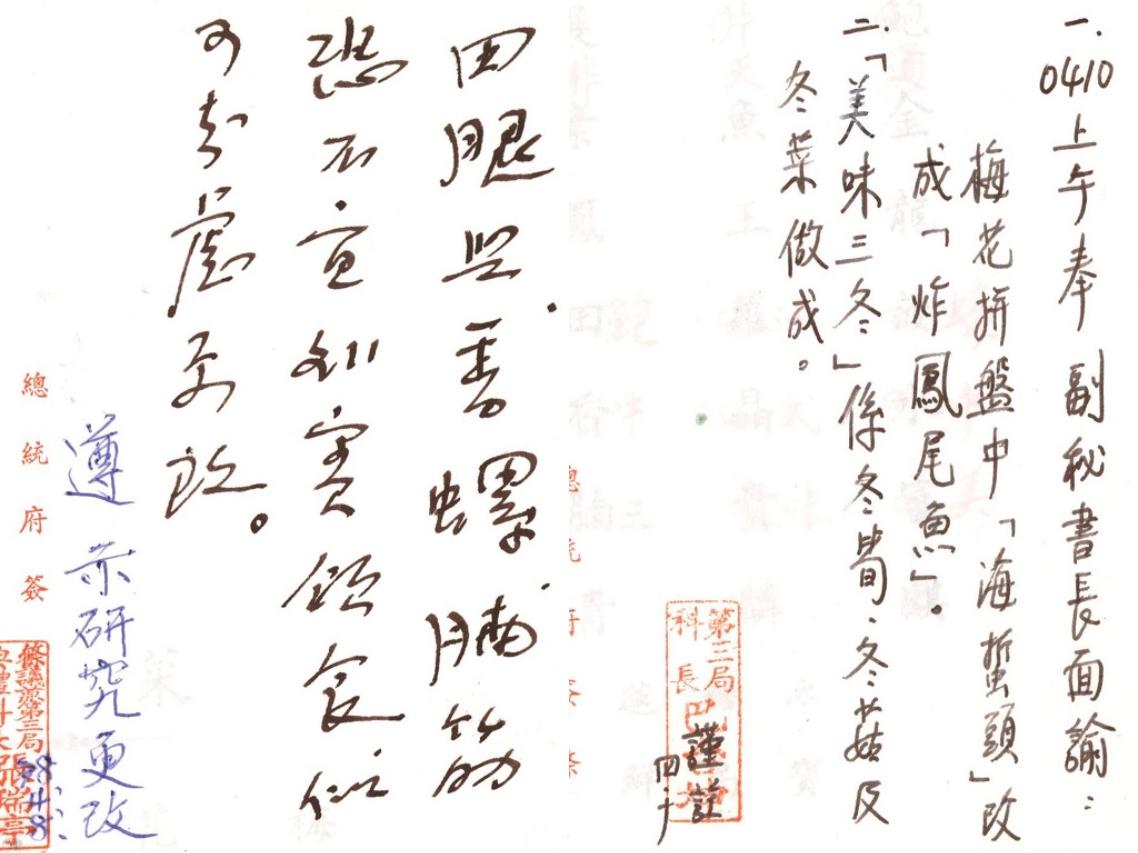 一. 0410上午奉 副秘書長面諭：
梅花拼盤中「海蜇頭」改
成「炸鳳尾魚」。
二.「美味三冬」係冬筍、冬菇及
冬菜做成。
第三局
科長
謹註
四、十
田腿與香螺.腩筋
恐不宜外賓食似
可考慮更改。
遵示研究更改
總統府簽
第三局
張瑞亭